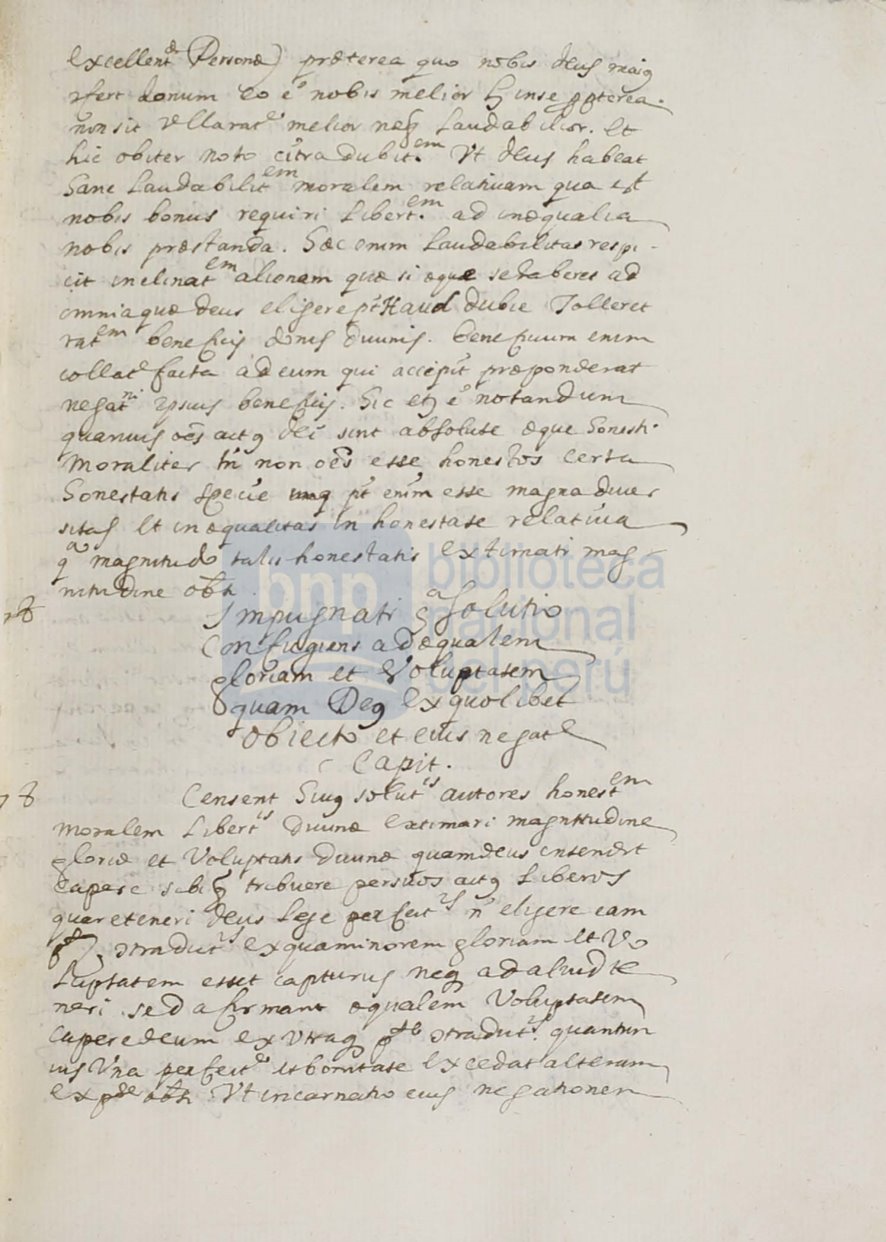 excellent.æ Personæ) præterea quo nobis deus maig
rfert donum eo e' nobis melior inse ppterea.
non sit Vllarat.e melior neq Laudabilior. et
hic obiter noto citra dubit.em Vt deus habeat
Sane Laudabilit.em moralem relativam qua est
nobis bonus requiri Libert.em ad inæqualia
nobis præstanda. Hæc enim Laudabilitas respi-
cit inclinat.em alionam quæ si æque se haberet ad
omnia quæ deus eligere pt Haud dubie Tolleret
rat.em beneficij donis divinis. beneficium enim
collat.e facta ad eum qui accipit præponderat
negat.ni ipsius beneficij. Sic et e' notandum
quamvis oes actq dei sint absolute æque honesti
Moraliter tn non oes esse honestos certa
honestatis specie pt enim esse magna diver
sitas et inæqualitas in honestate relativa
qa magnitudo talis honestatis extimati mag-
nitudine obti.
78
Impugnati solutio
Confugiens ad æqualem
gloriam et Voluptatem
quam Deq ex quolibet
obiecto et eius negat.e
Capit.
78
Censent huiq solut.is autores honest.em
moralem Libert.is Divinæ extimari magnitudine
gloriæ et Voluptatis Divinæ quam deus intendit
capere sibiq tribuere per suos actq Liberos
quare teneri deus Lege perfect.is n' eligere eam
ptem stradict.is ex qua minorem gloriam et Vo
Luptatem esset capturus neq ad aliud te
neri sed afirmant æqualem Voluptatem
capere deum ex Vtraq pte stradict.is quantum
vis Vna perfect.e et bonitate excedat alteram
ex pte obti Vt incarnatio eius negationem